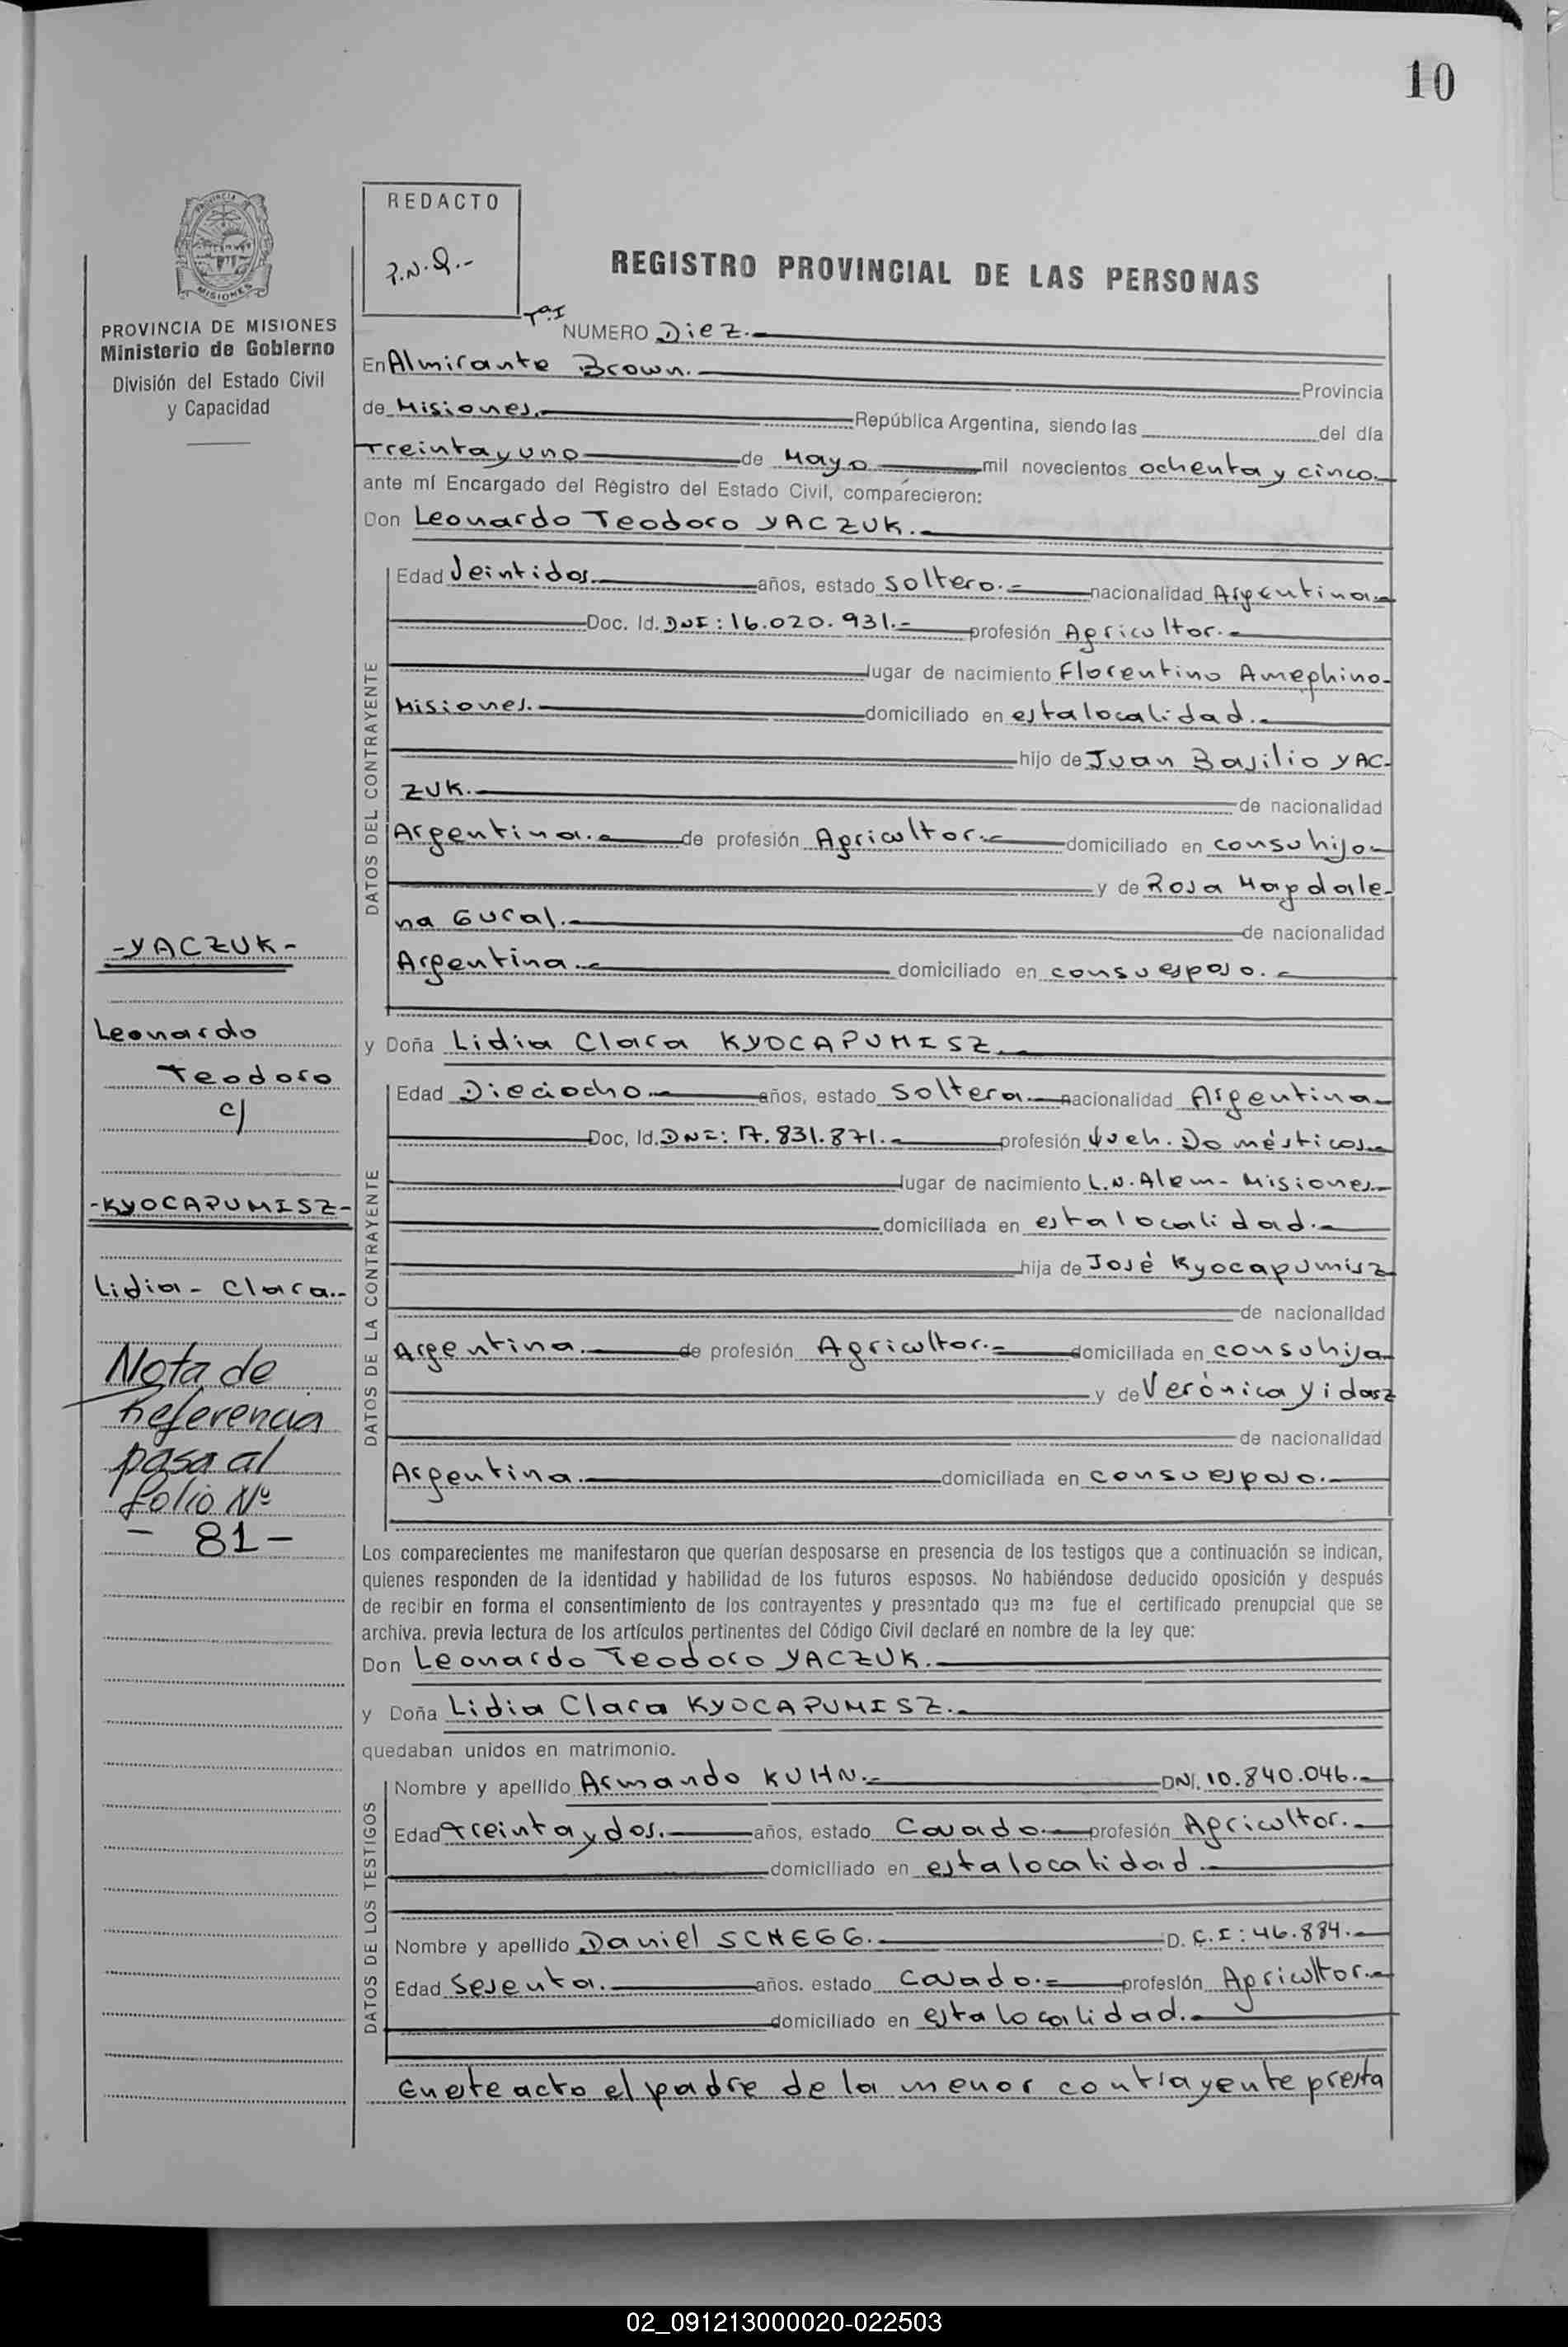 10
REDACTO
REGISTRO PROVINCIAL DE LAS PERSONAS
Tº.I
NUMERO Diez.-
PROVINCIA DE MISIONES
Ministerio de Gobierno
División del Estado Civil
y Capacidad
En Almirante Brown. Provincia
de Misiones. República Argentina, siendo las del día
Treinta y uno de Mayo mil novecientos ochenta y cinco.
ante mí Encargado del Registro del Estado Civil, comparecieron:
Don Leonardo Teodoro YACZUK.
DATOS DEL CONTRAYENTE
Edad Veintidos. años, estado Soltero.- nacionalidad Argentina.-
Doc. Id. DNI: 16.020.931.- profesión Agricultor.-
lugar de nacimiento Florentino Ameghino-
Misiones.- domiciliado en esta localidad.-
hijo de Juan Basilio YAC-
ZUK.- de nacionalidad
Argentina.- de profesión Agricultor.- domiciliado en con su hijo-
y de Rosa Magdale-
na Gural.- de nacionalidad
Argentina.- domiciliado en con su esposo.-
y Doña Lidia Clara KYOCAPUMISZ.-
DATOS DE LA CONTRAYENTE
Edad Dieciocho.- años, estado Soltera.- nacionalidad Argentina-
Doc, Id. DNI: 17.831.871.- profesión Queh. Domésticos.-
lugar de nacimiento L.N.Alem- Misiones-
domiciliada en esta localidad.-
hija de José Kyocapumisz
de nacionalidad
Argentina.- de profesión Agricultor.- domiciliada en con su hija-
y de Verónica Yidasz
de nacionalidad
Argentina.- domiciliada en con su esposo.-
-YACZUK-
Leonardo
Teodoro
c/
-KYOCAPUMISZ-
Lidia- Clara.-
Nota de
Referencia
pasa al
folio Nº
- 81 -
Los comparecientes me manifestaron que querían desposarse en presencia de los testigos que a continuación se indican,
quienes responden de la identidad y habilidad de los futuros esposos. No habiéndose deducido oposición y después
de recibir en forma el consentimiento de los contrayentes y presentado que me fue el certificado prenupcial que se
archiva. previa lectura de los artículos pertinentes del Código Civil declaré en nombre de la ley que:
Don Leonardo Teodoro YACZUK.-
y Doña Lidia Clara KYOCAPUMISZ.-
quedaban unidos en matrimonio.
DATOS DE LOS TESTIGOS
Nombre y apellido Armando KUHN.- DNI. 10.840.046.-
Edad Treinta y dos.- años, estado Casado.- profesión Agricultor.-
domiciliado en esta localidad.-
Nombre y apellido Daniel SCHEGG.- D. C.I: 46.884.-
Edad Sesenta.- años. estado Casado.- profesión Agricultor.-
domiciliado en esta localidad.-
En este acto el padre de la menor contrayente presta
02_091213000020-022503